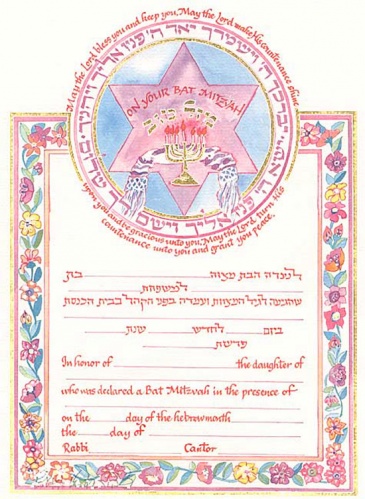 May the Lord bless you and keep you, May the Lord make His countenance shine
upon you and be gracious unto you, May the Lord turn His
countenance unto you and grant you peace.
יברכך ה' וישמרך יאר ה' פניו אליך ויחנך ישא ה' פניו אליך וישם לך שלום
ON YOUR BAT MITZVAH
מזל טוב
לנערה הבת מצוה בת
למשפחת
שהגיעה לגיל המצוות ועמדה בפני הקהל בבית הכנסת
ביום לחודש שנת
פרשת
In honor of the daughter of
who was declared a Bat Mitzvah in the presence of
on the day of the hebrew month
the day of
Rabbi Cantor